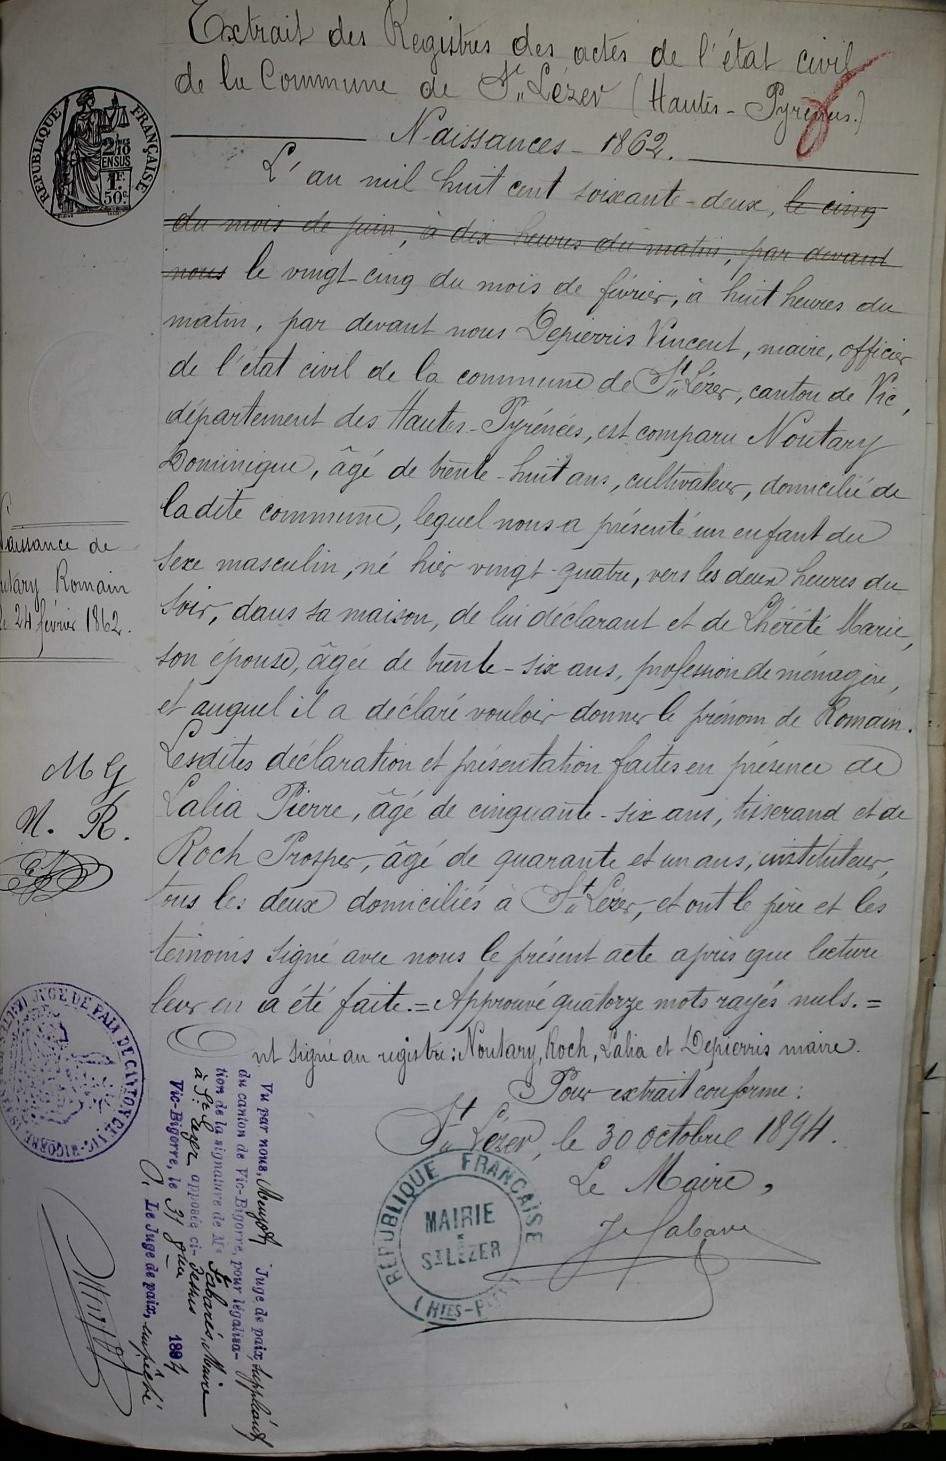 Extrait des Registres des actes de l'état civil
de la Commune de St Lézer (Hautes-Pyrénées.)
Naissances - 1862.
RÉPUBLIQUE FRANÇAISE
2/10
EN SUS
1F
50c
L'an mil huit cent soixante-deux, le cinq
du mois de juin, à dix heures du matin, par devant
nous le vingt-cinq du mois de février, à huit heures du
matin, par devant nous Depierris Vincent, maire, officier
de l'état civil de la commune de St Lézer, canton de Vic,
département des Hautes-Pyrénées, est comparu Noutary
Dominique, âgé de trente-huit ans, cultivateur, domicilié de
ladite commune, lequel nous a présenté un enfant du
sexe masculin, né hier vingt-quatre, vers les deux heures du
soir, dans sa maison, de lui déclarant et de Lhérété Marie,
son épouse, âgée de trente-six ans, profession de ménagère,
et auquel il a déclaré vouloir donner le prénom de Romain.
Lesdites déclaration et présentation faites en présence de
Lalia Pierre, âgé de cinquante-six ans, tisserand et de
Roch Prosper, âgé de quarante et un ans, instituteur,
tous les deux domiciliés à St Lézer, et ont le père et les
témoins signé avec nous le présent acte après que lecture
leur en a été faite. = Approuvé quatorze mots rayés nuls. =
Ont signé au registre: Noutary, Roch, Lalia et Depierris maire.
Pour extrait conforme:
St Lézer, le 30 octobre 1894.
Le Maire,
RÉPUBLIQUE FRANÇAISE
MAIRIE
ST LÉZER
(HTES-PYR.)
aissance de
utary Romain
le 24 février 1862.
M G
N. R.
JUGE DE PAIX DU CANTON DE VIC-BIGORRE
Vu par nous, Juge de paix, suppléant
du canton de Vic-Bigorre, pour légalisa-
tion de la signature de Mr Maire
à St Lézer apposée ci-dessus
Vic-Bigorre, le 31 1894
Le Juge de paix, empêché